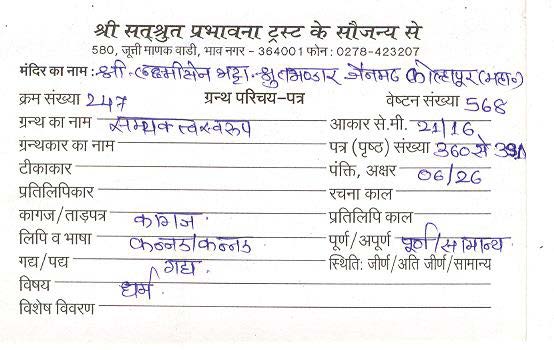 श्री सत्श्रुत प्रभावना ट्रस्ट के सौजन्य से
580, जूनी माणक वाडी, भाव नगर - 364001 फोन : 0278-423207
मंदिर का नाम : श्री लक्ष्मीसेन भट्टा. श्रुतभण्डार जैनमठ कोल्हापुर (महा०)
क्रम संख्या 247 ग्रन्थ परिचय-पत्र वेष्टन संख्या 568
ग्रन्थ का नाम सम्यक्त्वस्वरूप आकार से.मी. 21/16
ग्रन्थकार का नाम पत्र (पृष्ठ) संख्या 360 से
टीकाकार पंक्ति, अक्षर 06/26
प्रतिलिपिकार रचना काल
कागज/ताड़पत्र कागज. प्रतिलिपि काल
लिपि व भाषा कन्नड/कन्नड पूर्ण/अपूर्ण पूर्ण/सामान्य
गद्य/पद्य गद्य. स्थिति: जीर्ण/अति जीर्ण/सामान्य
विषय धर्म.
विशेष विवरण